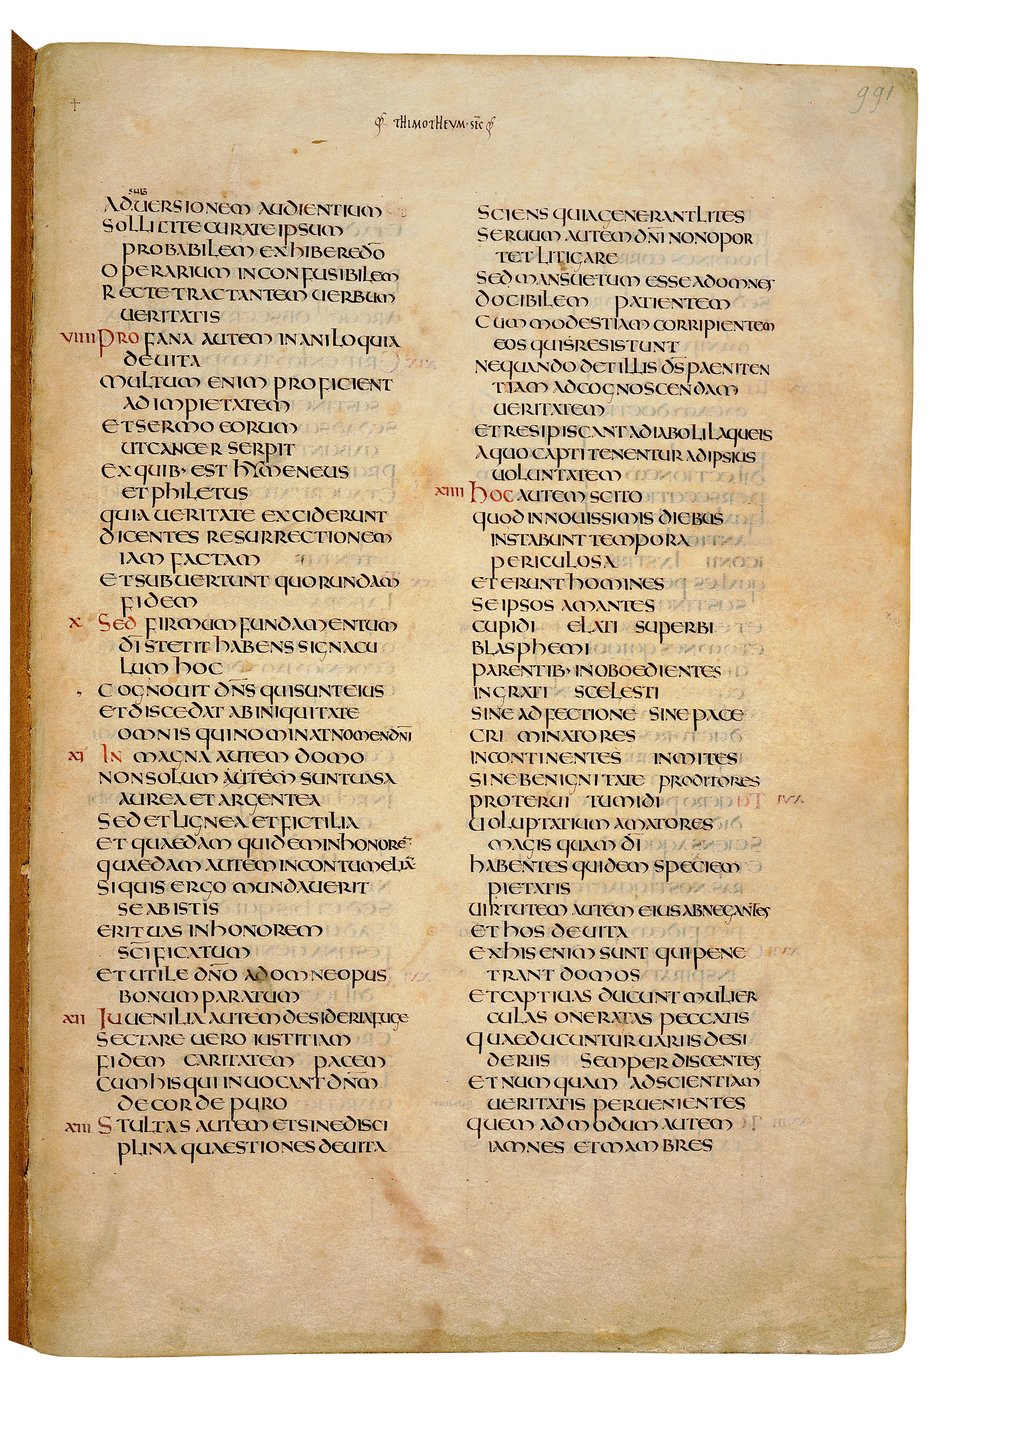 991
THIMOTHEUM · SEC
sub
ADUERSIONEM AUDIENTIUM
SOLLICITE CURATE IPSUM
PROBABILEM EXHIBERE DO̅
OPERARIUM INCONFUSIBILEM
RECTE TRACTANTEM UERBUM
UERITATIS
VIIII PROFANA AUTEM INANILOQUIA
DEUITA
MULTUM ENIM PROFICIENT
AD IMPIETATEM
ET SERMO EORUM
UT CANCER SERPIT
EX QUIB· EST HYMENEUS
ET PHILETUS
QUIA UERITATE EXCIDERUNT
DICENTES RESURRECTIONEM
IAM FACTAM
ET SUBUERTUNT QUORUNDAM
FIDEM
X SED FIRMUM FUNDAMENTUM
DI̅ STETIT HABENS SIGNACU
LUM HOC
COGNOUIT DN̅S QUI SUNT EIUS
ET DISCEDAT AB INIQUITATE
OMNIS QUI NOMINAT NOMEN DNI̅
XI IN MAGNA AUTEM DOMO
NON SOLUM AUTEM SUNT UASA
AUREA ET ARGENTEA
SED ET LIGNEA ET FICTILIA
ET QUAEDAM QUIDEM IN HONORE̅
QUAEDAM AUTEM IN CONTUMELIA̅
SI QUIS ERGO MUNDAUERIT
SE AB ISTIS
ERIT UAS IN HONOREM
SC̅IFICATUM
ET UTILE DN̅O AD OMNE OPUS
BONUM PARATUM
XII IUUENILIA AUTEM DESIDERIA FUGE
SECTARE UERO IUSTITIAM
FIDEM CARITATEM PACEM
CUM HIS QUI INUOCANT DN̅M
DE CORDE PURO
XIII STULTAS AUTEM ET SINE DISCI
PLINA QUAESTIONES DEUITA
SCIENS QUIA GENERANT LITES
SERUUM AUTEM DNI̅ NON OPOR
TET LITIGARE
SED MANSUETUM ESSE AD OMNES
DOCIBILEM PATIENTEM
CUM MODESTIAM CORRIPIENTEM
EOS QUI RESISTUNT
NEQUANDO DET ILLIS DS̅ PAENITEN
TIAM AD COGNOSCENDAM
UERITATEM
ET RESIPISCANT A DIABOLI LAQUEIS
A QUO CAPTI TENENTUR AD IPSIUS
UOLUNTATEM
XIIII HOC AUTEM SCITO
QUOD IN NOUISSIMIS DIEBUS
INSTABUNT TEMPORA
PERICULOSA
ET ERUNT HOMINES
SE IPSOS AMANTES
CUPIDI ELATI SUPERBI
BLASPHEMI
PARENTIB· INOBOEDIENTES
INGRATI SCELESTI
SINE ADFECTIONE SINE PACE
CRIMINATORES
INCONTINENTES INMITES
SINE BENIGNITATE PRODITORES
PROTERUI TUMIDI
UOLUPTATIUM AMATORES
MAGIS QUAM DI̅
HABENTES QUIDEM SPECIEM
PIETATIS
UIRTUTEM AUTEM EIUS ABNEGANTES
ET HOS DEUITA
EX HIS ENIM SUNT QUI PENE
TRANT DOMOS
ET CAPTIUAS DUCUNT MULIER
CULAS ONERATAS PECCATIS
QUAE DUCUNTUR UARIIS DESI
DERIIS SEMPER DISCENTES
ET NUMQUAM AD SCIENTIAM
UERITATIS PERUENIENTES
QUEMADMODUM AUTEM
IAMNES ET MAMBRES